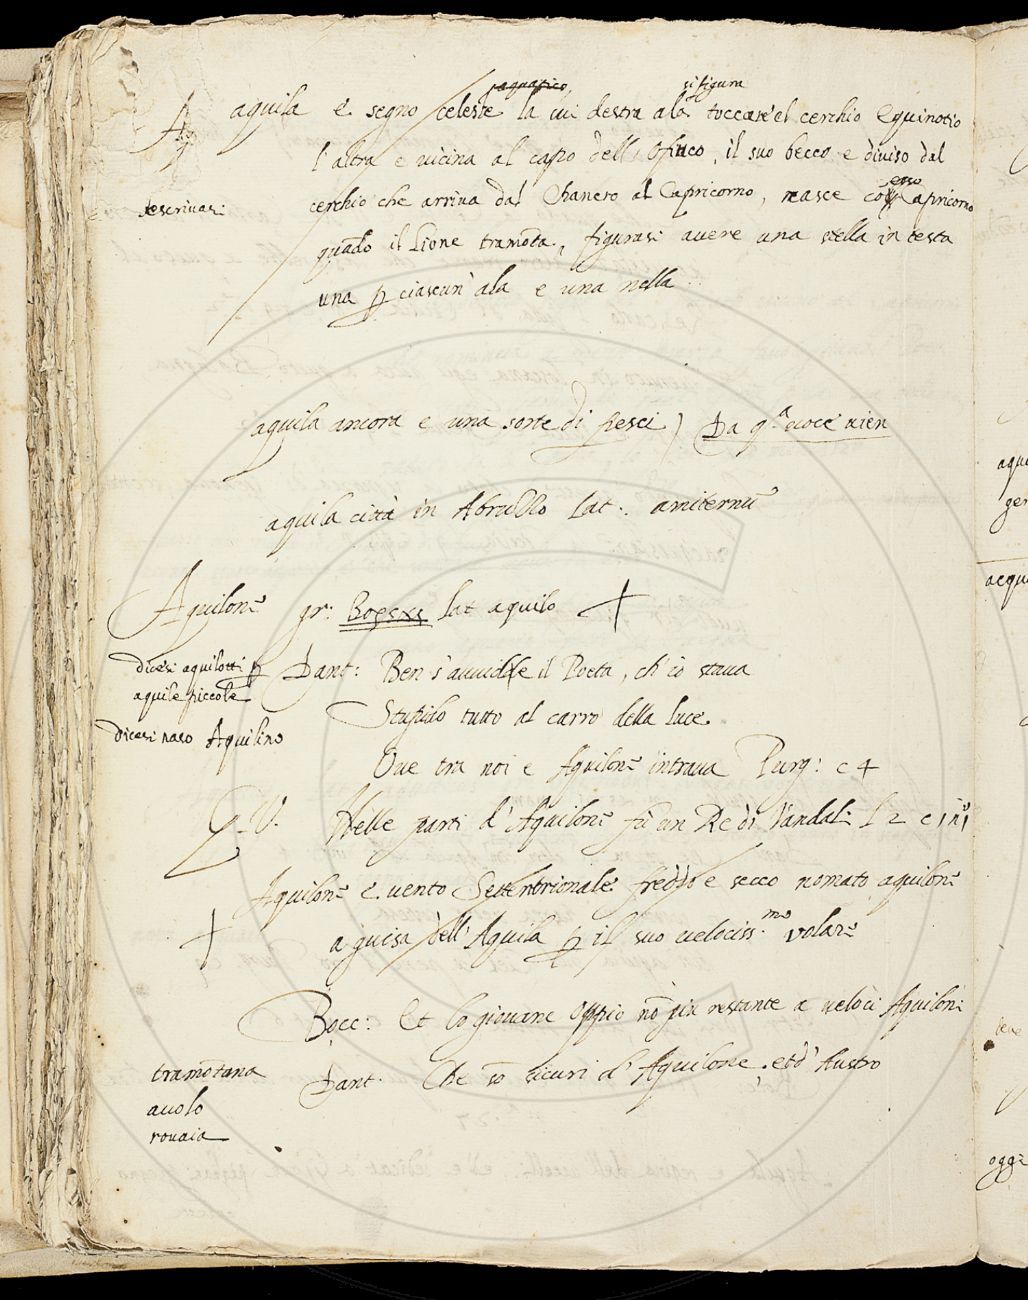 aquatico si figura
aquila è segno celeste la cui destra ala toccare el cerchio Equinotio
l'altra e vicina al capo dell'Ofiuco, il suo becco e diviso dal
descrivasi
cerchio che arriva dal Chancro al Capricorno, nasce con esso Capricorno
quādo il Lione tramōta, figurasi avere una stella in testa
una p ciascun' ala e una nella
aquila ancora e una sorte di pesci) Da qª voce vien
aquila città in Abruzzo Lat: amiternū
Aquilone gr: Βορεας lat aquilo +
dicesi aquilotti p
aquile piccole
Dant: Ben s'avvidde il Poeta, ch'io stava
Stupido tutto al carro della luce
dicesi naso Aquilino
Ove tra noi e Aquilone intrava Purg: c 4
G.V. Nelle parti d'Aquilone fu un Re di Vandali L 2 c
Aquilone e vento Settentrionale freddo e secco nomato aquilone
+ a guisa dell'Aquila p il suo velociss.mo volare
Bocc: Et lo giovane Oppio nō piu restante a veloci Aquiloni
tramōtana
Dant. Che sō sicuri d'Aquilone, et d'Austro
avolo
rovaia
aqui
ger
acqu
leve
oggi